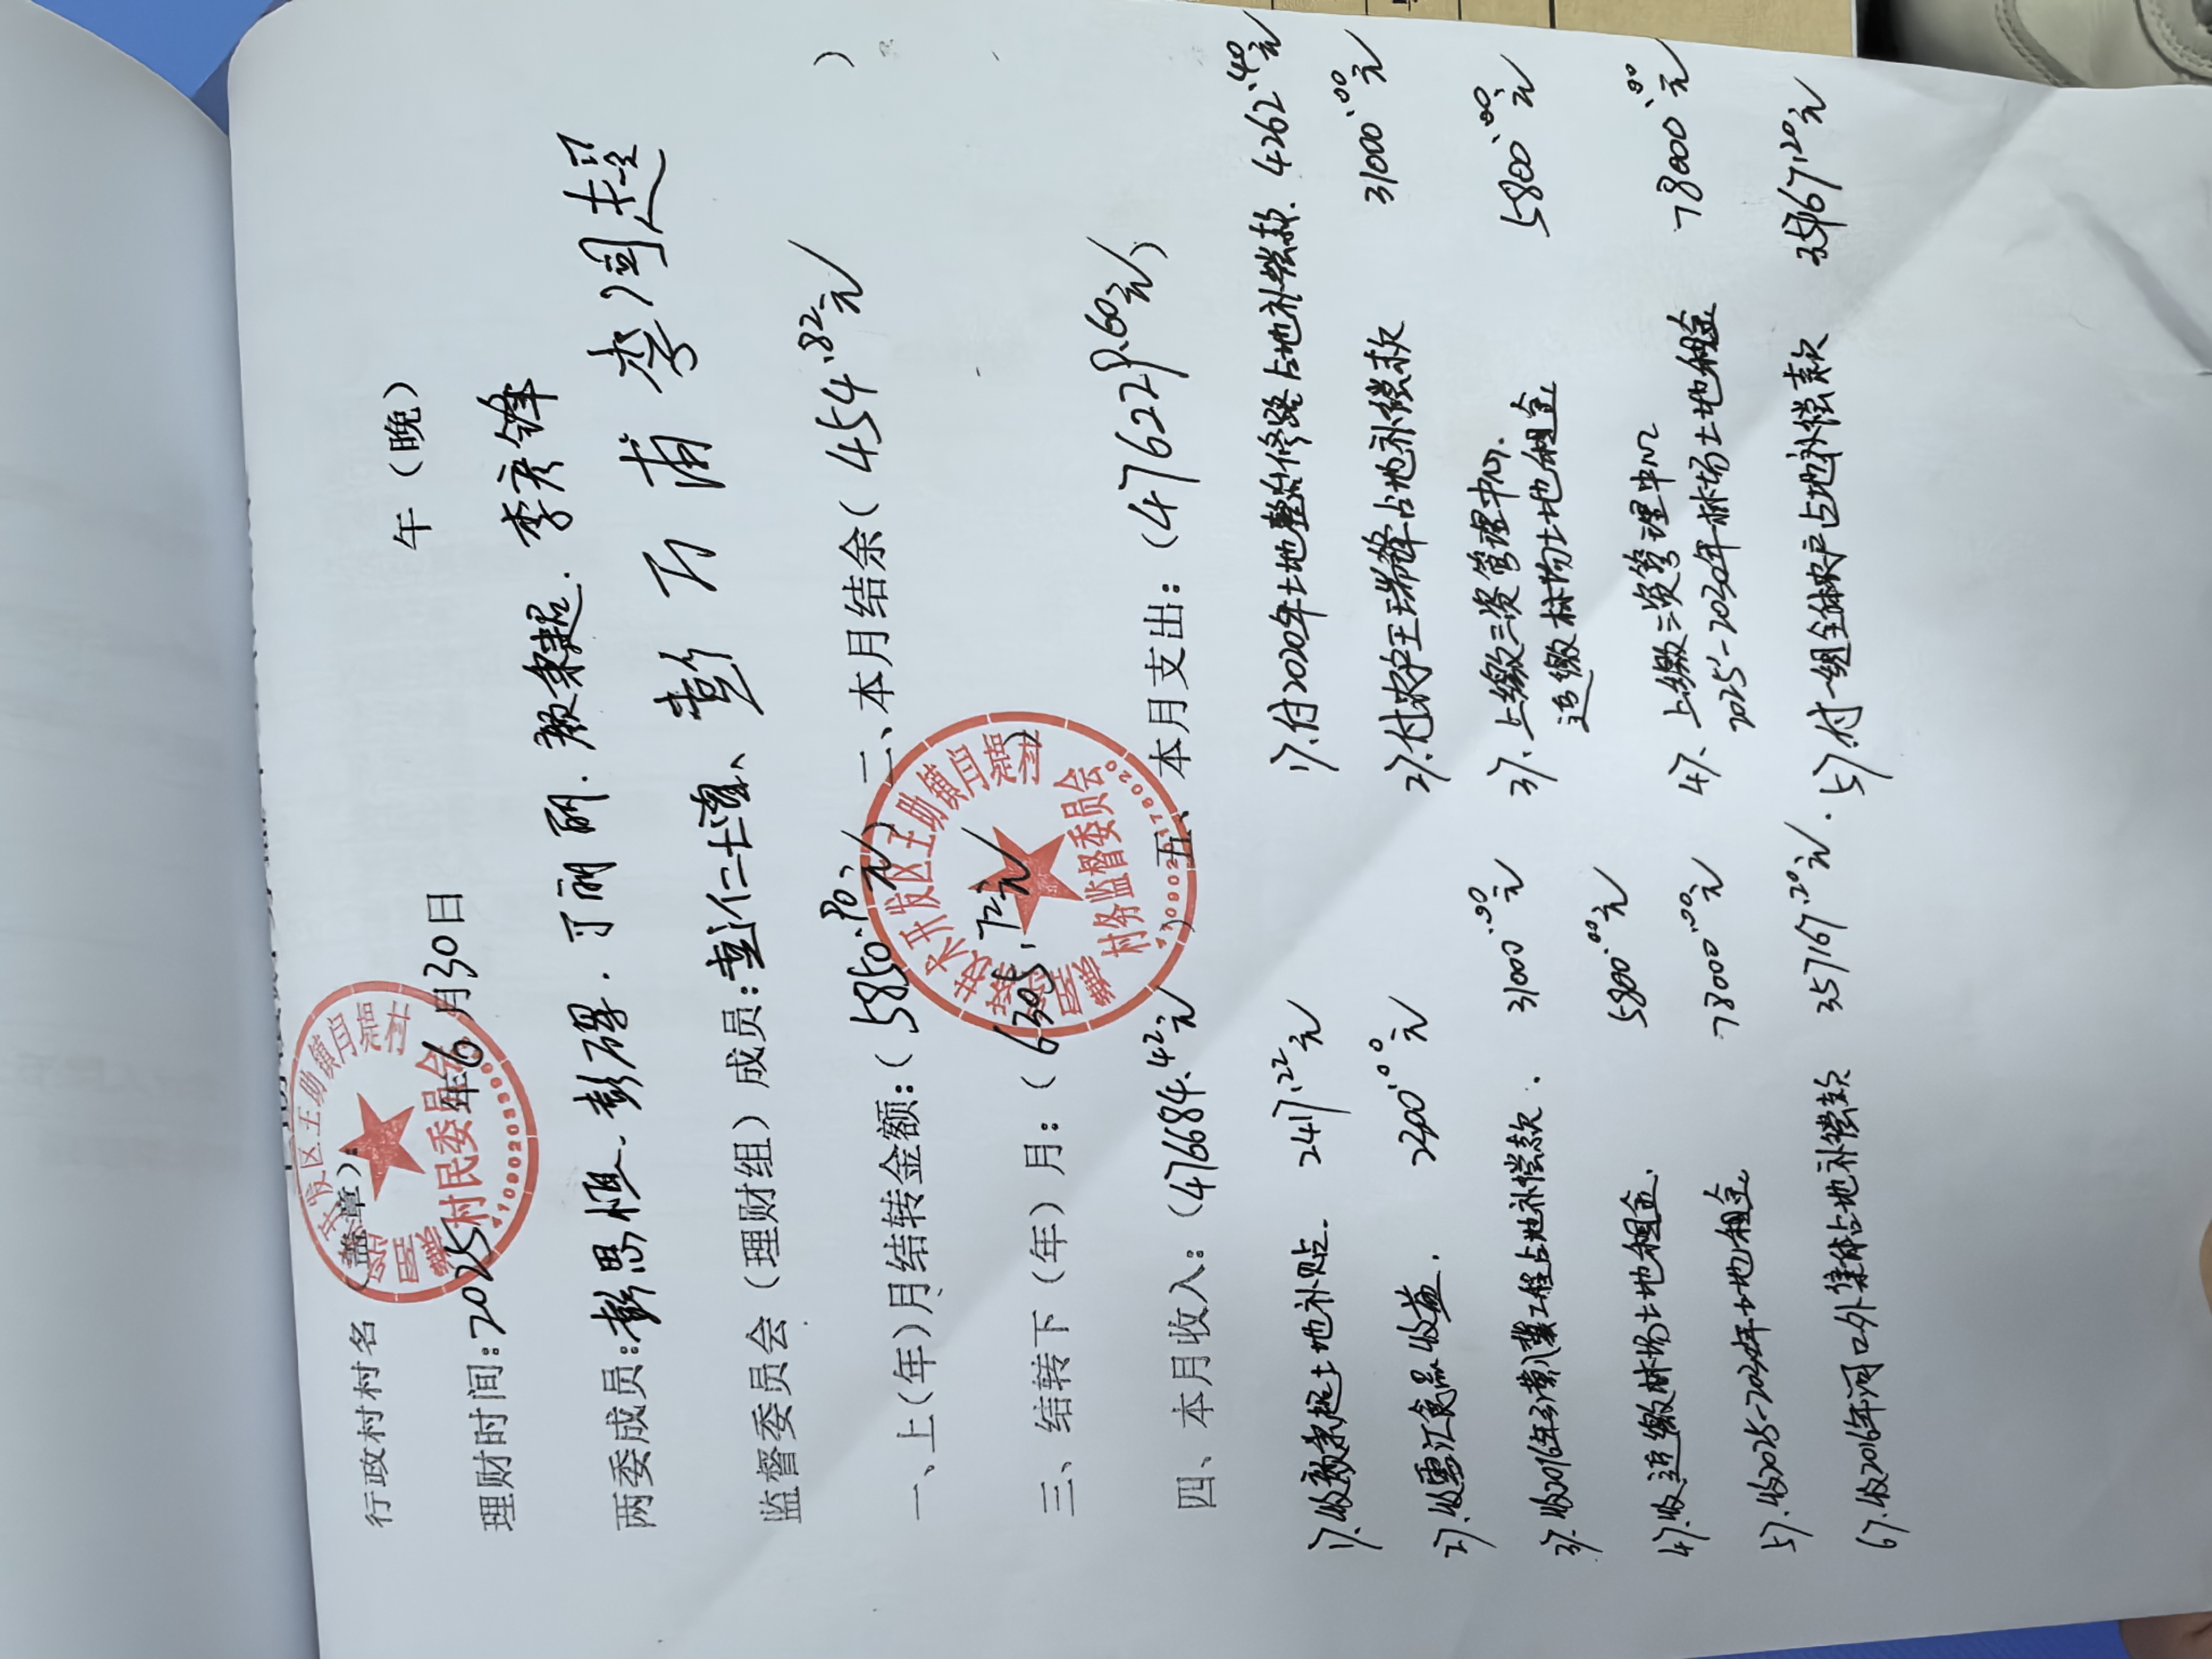 行政村村名（盖章）：
开发区王助镇闫堤村
村民委员会
理财时间:2025年6月30日 午（晚）
两委成员:彭思恒、彭 . 丁丽丽. 颜秉超. 李彦锋
监督委员会（理财组）成员:彭仁士、彭万甫 李润超 ）
一、上(年)月结转金额:( 5850.90元) 二、本月结余( 454.82元
技术开发区王助镇闫堤村
村务监督委员会
三、结转下（年）月:( 6305.72元 )
四、本月收入:(476684.42元 ) 五、本月支出:(476229.60元)
1）.收颜秉超土地补贴. 2417.22元
2）.收惠汇食品收益. 2300.00元
3）.收2016年引黄入冀工程占地补偿款. 31000.00元
4）.收追缴林场土地租金. 5800.00元
5）.收2025-2030年土地租金 78000.00元
6）.收2016年河口外集体占地补偿款 357167.20元.
1）.付2020年土地整治修路占地补偿款. 4262.40元
2）.付农户王瑞锋占地补偿款 31000.00元
3）.上缴三资管理中心.
追缴林场土地租金 5800.00元
4）、上缴三资管理中心
2025-2030年林场土地租金 78000.00元
5）.付一组全体农户占地补偿款 357167.20元